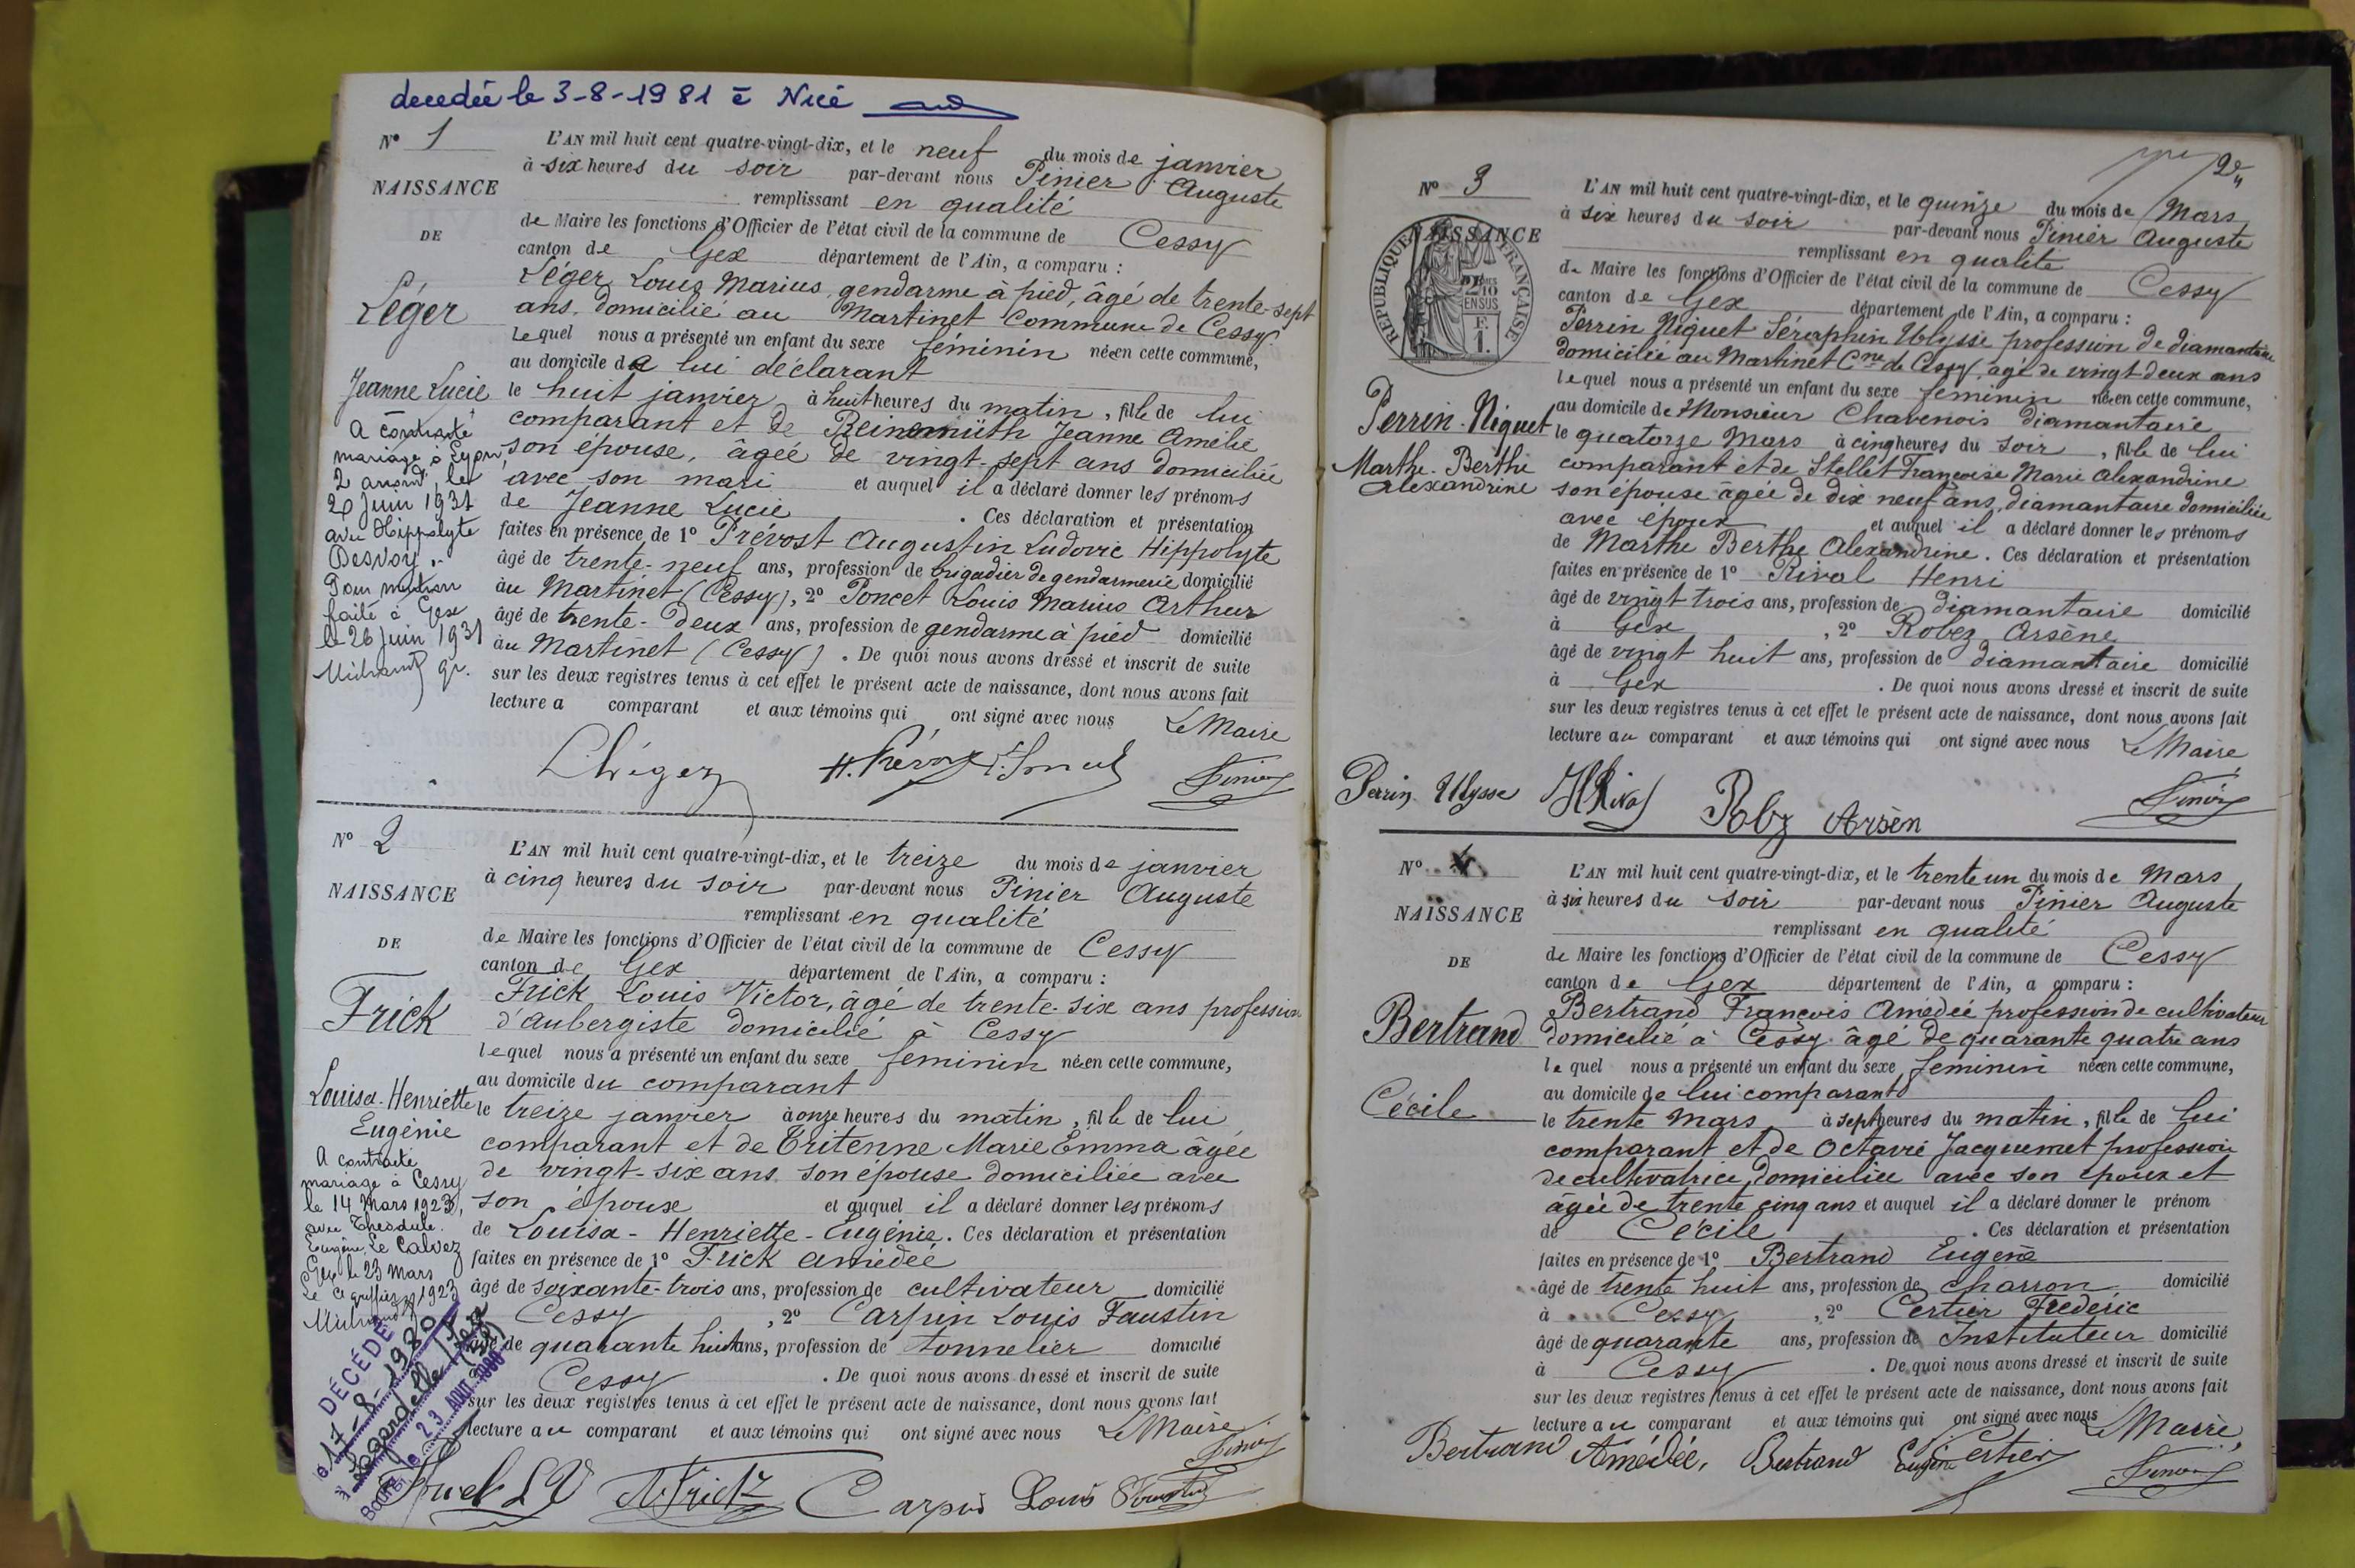 decedée le 3-8-1981 à Nice
N° 1
NAISSANCE
DE
Léger
Jeanne Lucie
A contracté
mariage à Lyon,
2 arrond<sup>t</sup>, le
20 Juin 1931
avec Hippolyte
Desvoy.-
Pour mention
faite à Gex
le 26 Juin 1931
L'AN mil huit cent quatre-vingt-dix, et le neuf du mois de janvier
à six heures du soir par-devant nous Pinier Auguste
remplissant en qualité
de Maire les fonctions d'Officier de l'état civil de la commune de Cessy
canton de Gex département de l'Ain, a comparu :
Léger Louis Marius gendarme à pied, âgé de trente-sept
ans, domicilié au Martinet Commune de Cessy
lequel nous a présenté un enfant du sexe féminin née en cette commune,
au domicile de lui déclarant
le huit janvier à huit heures du matin, fille de lui
comparant et de Jeanne Amélie
son épouse, âgée de vingt-sept ans domiciliée
avec son mari et auquel il a déclaré donner les prénoms
de Jeanne Lucie . Ces déclaration et présentation
faites en présence de 1° Prévost Augustin Ludovic Hippolyte
âgé de trente-neuf ans, profession de brigadier de gendarmerie domicilié
au Martinet (Cessy), 2° Poncet Louis Marius Arthur
âgé de trente-deux ans, profession de gendarme à pied domicilié
au Martinet (Cessy) . De quoi nous avons dressé et inscrit de suite
sur les deux registres tenus à cet effet le présent acte de naissance, dont nous avons fait
lecture a comparant et aux témoins qui ont signé avec nous Le Maire
N° 2
NAISSANCE
DE
Frick
Louisa-Henriette
Eugénie
A contracté
mariage à Cessy
le 14 Mars 1923,
avec Théodule
Eugène Le Calvez
Gex le 23 Mars
1923
DÉCÉDÉ
le 17-8-1980
23 AOUT 1980
L'AN mil huit cent quatre-vingt-dix, et le treize du mois de janvier
à cinq heures du soir par-devant nous Pinier Auguste
remplissant en qualité
de Maire les fonctions d'Officier de l'état civil de la commune de Cessy
canton de Gex département de l'Ain, a comparu :
Frick Louis Victor, âgé de trente-six ans profession
d'aubergiste domicilié à Cessy
lequel nous a présenté un enfant du sexe feminin née en cette commune,
au domicile du comparant
le treize janvier à onze heures du matin, fille de lui
comparant et de Tritenne Marie Emma âgée
de vingt-six ans son épouse domiciliée avec
son épouse et auquel il a déclaré donner les prénoms
de Louisa-Henriette-Eugénie. Ces déclaration et présentation
faites en présence de 1° Frick Amédée
âgé de soixante-trois ans, profession de cultivateur domicilié
Cessy , 2° Carpin Louis Faustin
âgé de quarante huit ans, profession de tonnelier domicilié
Cessy . De quoi nous avons dressé et inscrit de suite
sur les deux registres tenus à cet effet le présent acte de naissance, dont nous avons fait
lecture au comparant et aux témoins qui ont signé avec nous Le Maire
Carpin Louis
2e
N° 3
NAISSANCE
RÉPUBLIQUE FRANÇAISE
Perrin-Niguet
Marthe-Berthe
Alexandrine
L'AN mil huit cent quatre-vingt-dix, et le quinze du mois de Mars
à six heures du soir par-devant nous Pinier Auguste
remplissant en qualité
de Maire les fonctions d'Officier de l'état civil de la commune de Cessy
canton de Gex département de l'Ain, a comparu :
Perrin Niguet Séraphin Ulysse profession de diamantaire
domicilié au Martinet Cne de Cessy, âgé de vingt-deux ans
lequel nous a présenté un enfant du sexe feminin née en cette commune,
au domicile de Monsieur Chavenois diamantaire
le quatorze Mars à cinq heures du soir , fille de lui
comparant et de Stellet Françoise Marie Alexandrine
son épouse âgée de dix neuf ans, diamantaire domiciliée
avec époux et auquel il a déclaré donner les prénoms
de Marthe Berthe Alexandrine. Ces déclaration et présentation
faites en présence de 1° Rival Henri
âgé de vingt trois ans, profession de diamantaire domicilié
à Gex , 2° Robez Arsène
âgé de vingt huit ans, profession de diamantaire domicilié
à Gex . De quoi nous avons dressé et inscrit de suite
sur les deux registres tenus à cet effet le présent acte de naissance, dont nous avons fait
lecture au comparant et aux témoins qui ont signé avec nous Le Maire
Perrin Ulysse HRival Robz Arsèn
N° 4
NAISSANCE
DE
Bertrand
Cécile
L'AN mil huit cent quatre-vingt-dix, et le trente un du mois de Mars
à six heures du soir par-devant nous Pinier Auguste
remplissant en qualité
de Maire les fonctions d'Officier de l'état civil de la commune de Cessy
canton de Gex département de l'Ain, a comparu :
Bertrand François Amédée profession de cultivateur
domicilié à Cessy âgé de quarante quatre ans
lequel nous a présenté un enfant du sexe feminin née en cette commune,
au domicile de lui comparant
le trente Mars à sept heures du matin, fille de lui
comparant et de Octavie Jacquemet profession
de cultivatrice, domiciliée avec son époux et
âgée de trente cinq ans et auquel il a déclaré donner le prénom
de Cécile . Ces déclaration et présentation
faites en présence de 1° Bertrand Eugène
âgé de trente huit ans, profession de charron domicilié
à Cessy , 2° Certier Frédéric
âgé de quarante ans, profession de Instituteur domicilié
à Cessy . De quoi nous avons dressé et inscrit de suite
sur les deux registres tenus à cet effet le présent acte de naissance, dont nous avons fait
lecture au comparant et aux témoins qui ont signé avec nous Le Maire,
Bertrand Amédée, Bertrand Eugène Certier